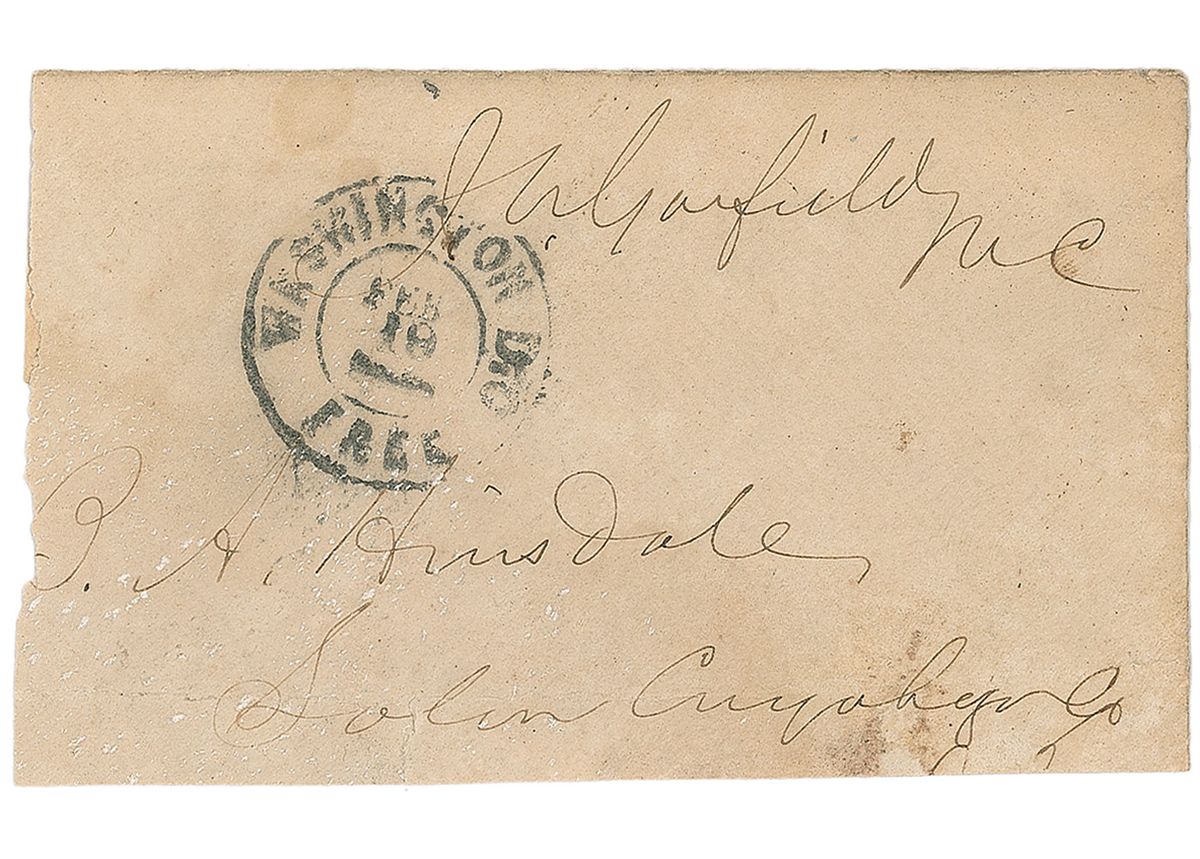 J A Garfield MC
WASHINGTON D.C.
FEB
18
FREE
B. A. Hinsdale,
Solon Cuyahoga Co